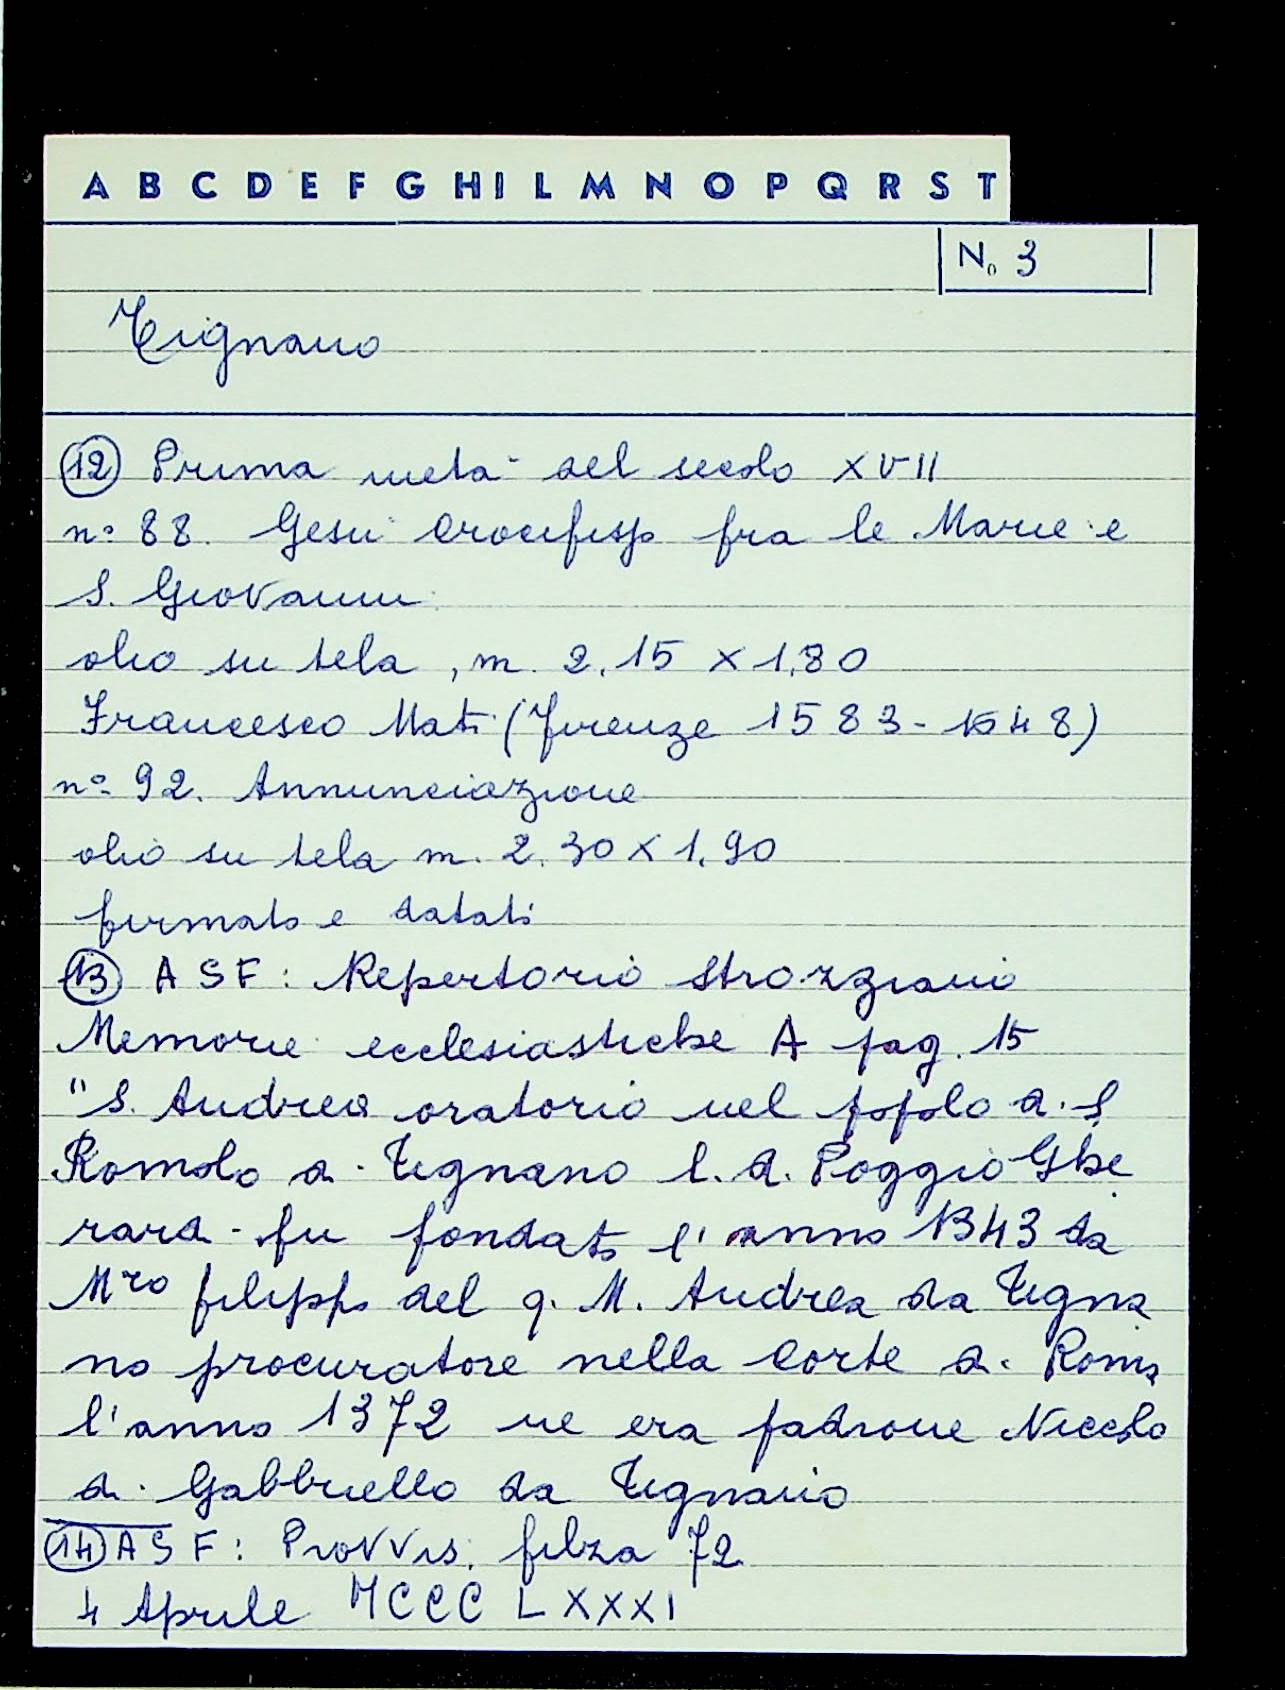 A B C D E F G H I L M N O P Q R S T
N. 3
Tignano
12 Prima metà del secolo XVII
n° 88. Gesù Crocifisso fra le Marie e
S. Giovanni
olio su tela, m. 2,15 x 1,80
Francesco Mati (Firenze 1583-1648)
n° 92. Annunciazione
olio su tela m. 2,30 x 1,90
firmato e datati
13 ASF: Repertorio Strozziano
Memorie ecclesiastiche A pag. 15
"S. Andrea oratorio nel popolo di S
Romolo a Tignano l. d. Poggio Ghe
rardi - fu fondato l'anno 1343 da
Mro filippo del q. M. Andrea da Tigna
no procuratore nella Corte di Roma
l'anno 1372 ne era padrone Niccolo
di Gabbriello da Tignano
14 ASF: Provvis. filza 72
4 Aprile MCCC LXXXI